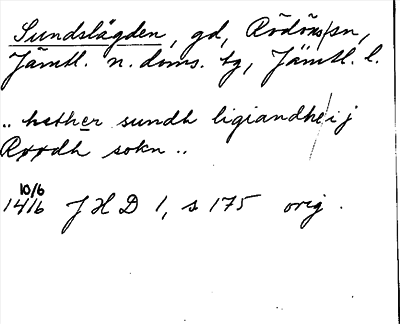 Sundslägden, gd, Rödöns sn,
Jämtl. n. doms. tg, Jämtl. l.
.. hether sundh ligiandhe i j
Røødh sokn ..
10/6
1416 JHD 1, s 175 orig.